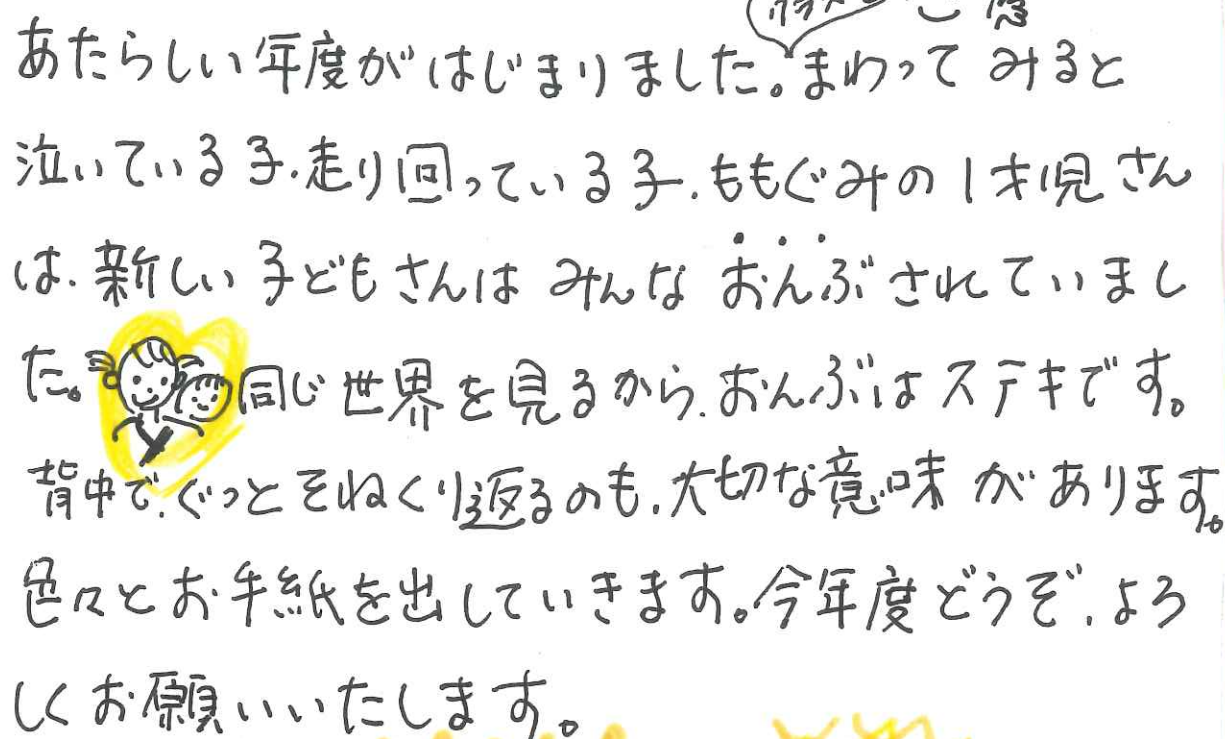 あたらしい年度がはじまりました。まわってみると
泣いている子、走り回っている子、ももぐみの1才児さん
は、新しい子どもさんはみんなおんぶされていまし
た。同じ世界を見るから、おんぶはステキです。
背中で、ぐっとそねくり返るのも、大切な意味があります。
色々とお手紙を出していきます。今年度どうぞ、よろ
しくお願いいたします。